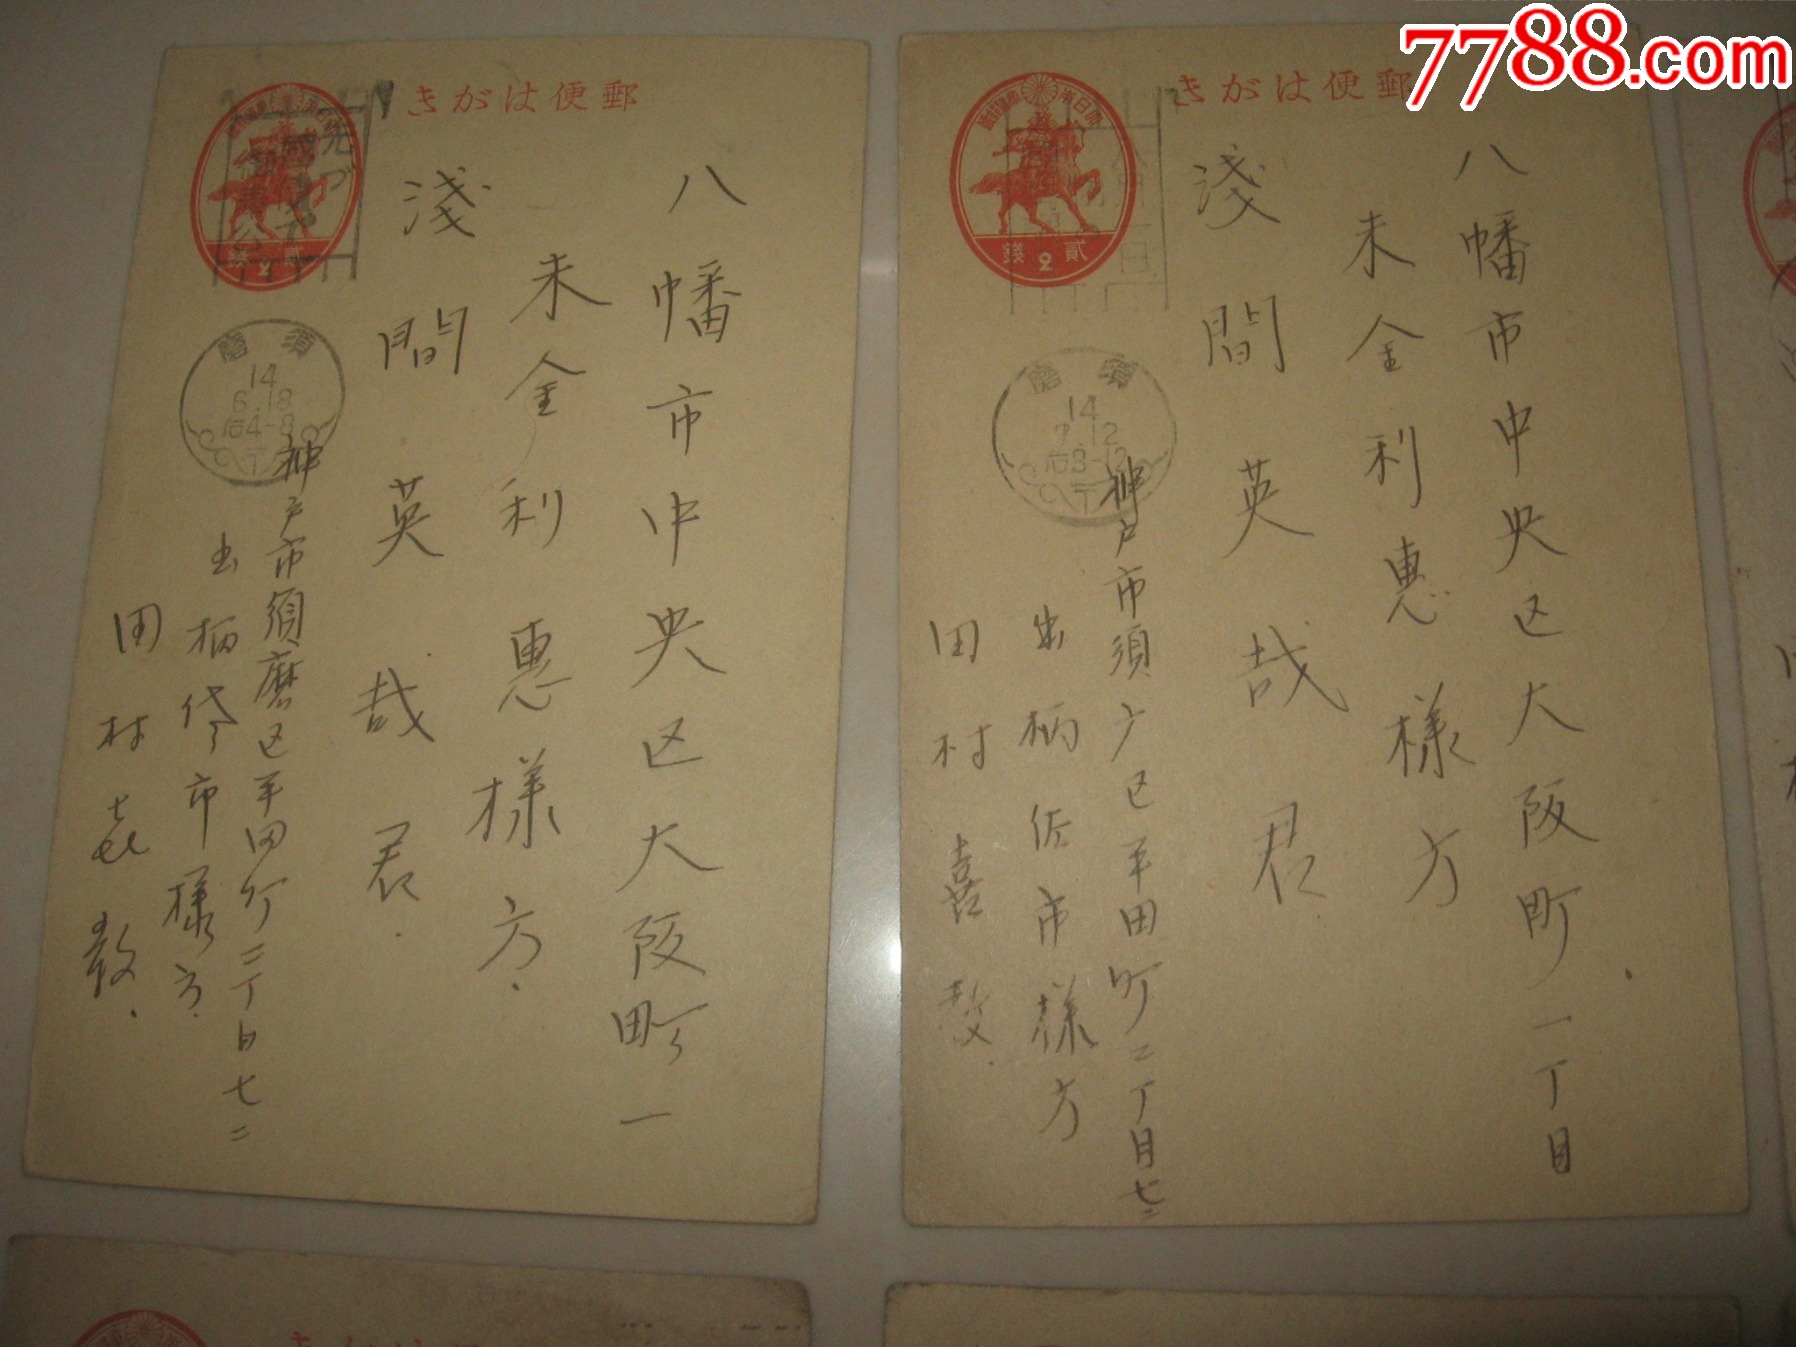 7788.com
郵便はがき
貳錢
八幡市中央区大阪町一
末金利惠様方
淺間英哉君
須磨
14
6.18
后4-8
神戸市須磨区平田町二丁目七二
出柄佐市様方
田村㐂教
郵便はがき
大日本帝國郵便
貳錢
八幡市中央区大阪町一丁目
末金利惠様方
淺間英哉君
須磨
14
7.12
后8-12
神戸市須广区平田町二丁目七二
出柄佐市様方
田村喜教